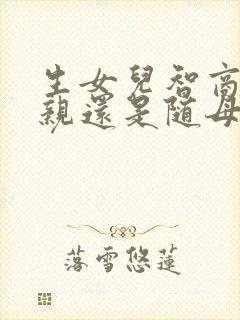 生女兒智商
親還是隨母
落雪悠蓮